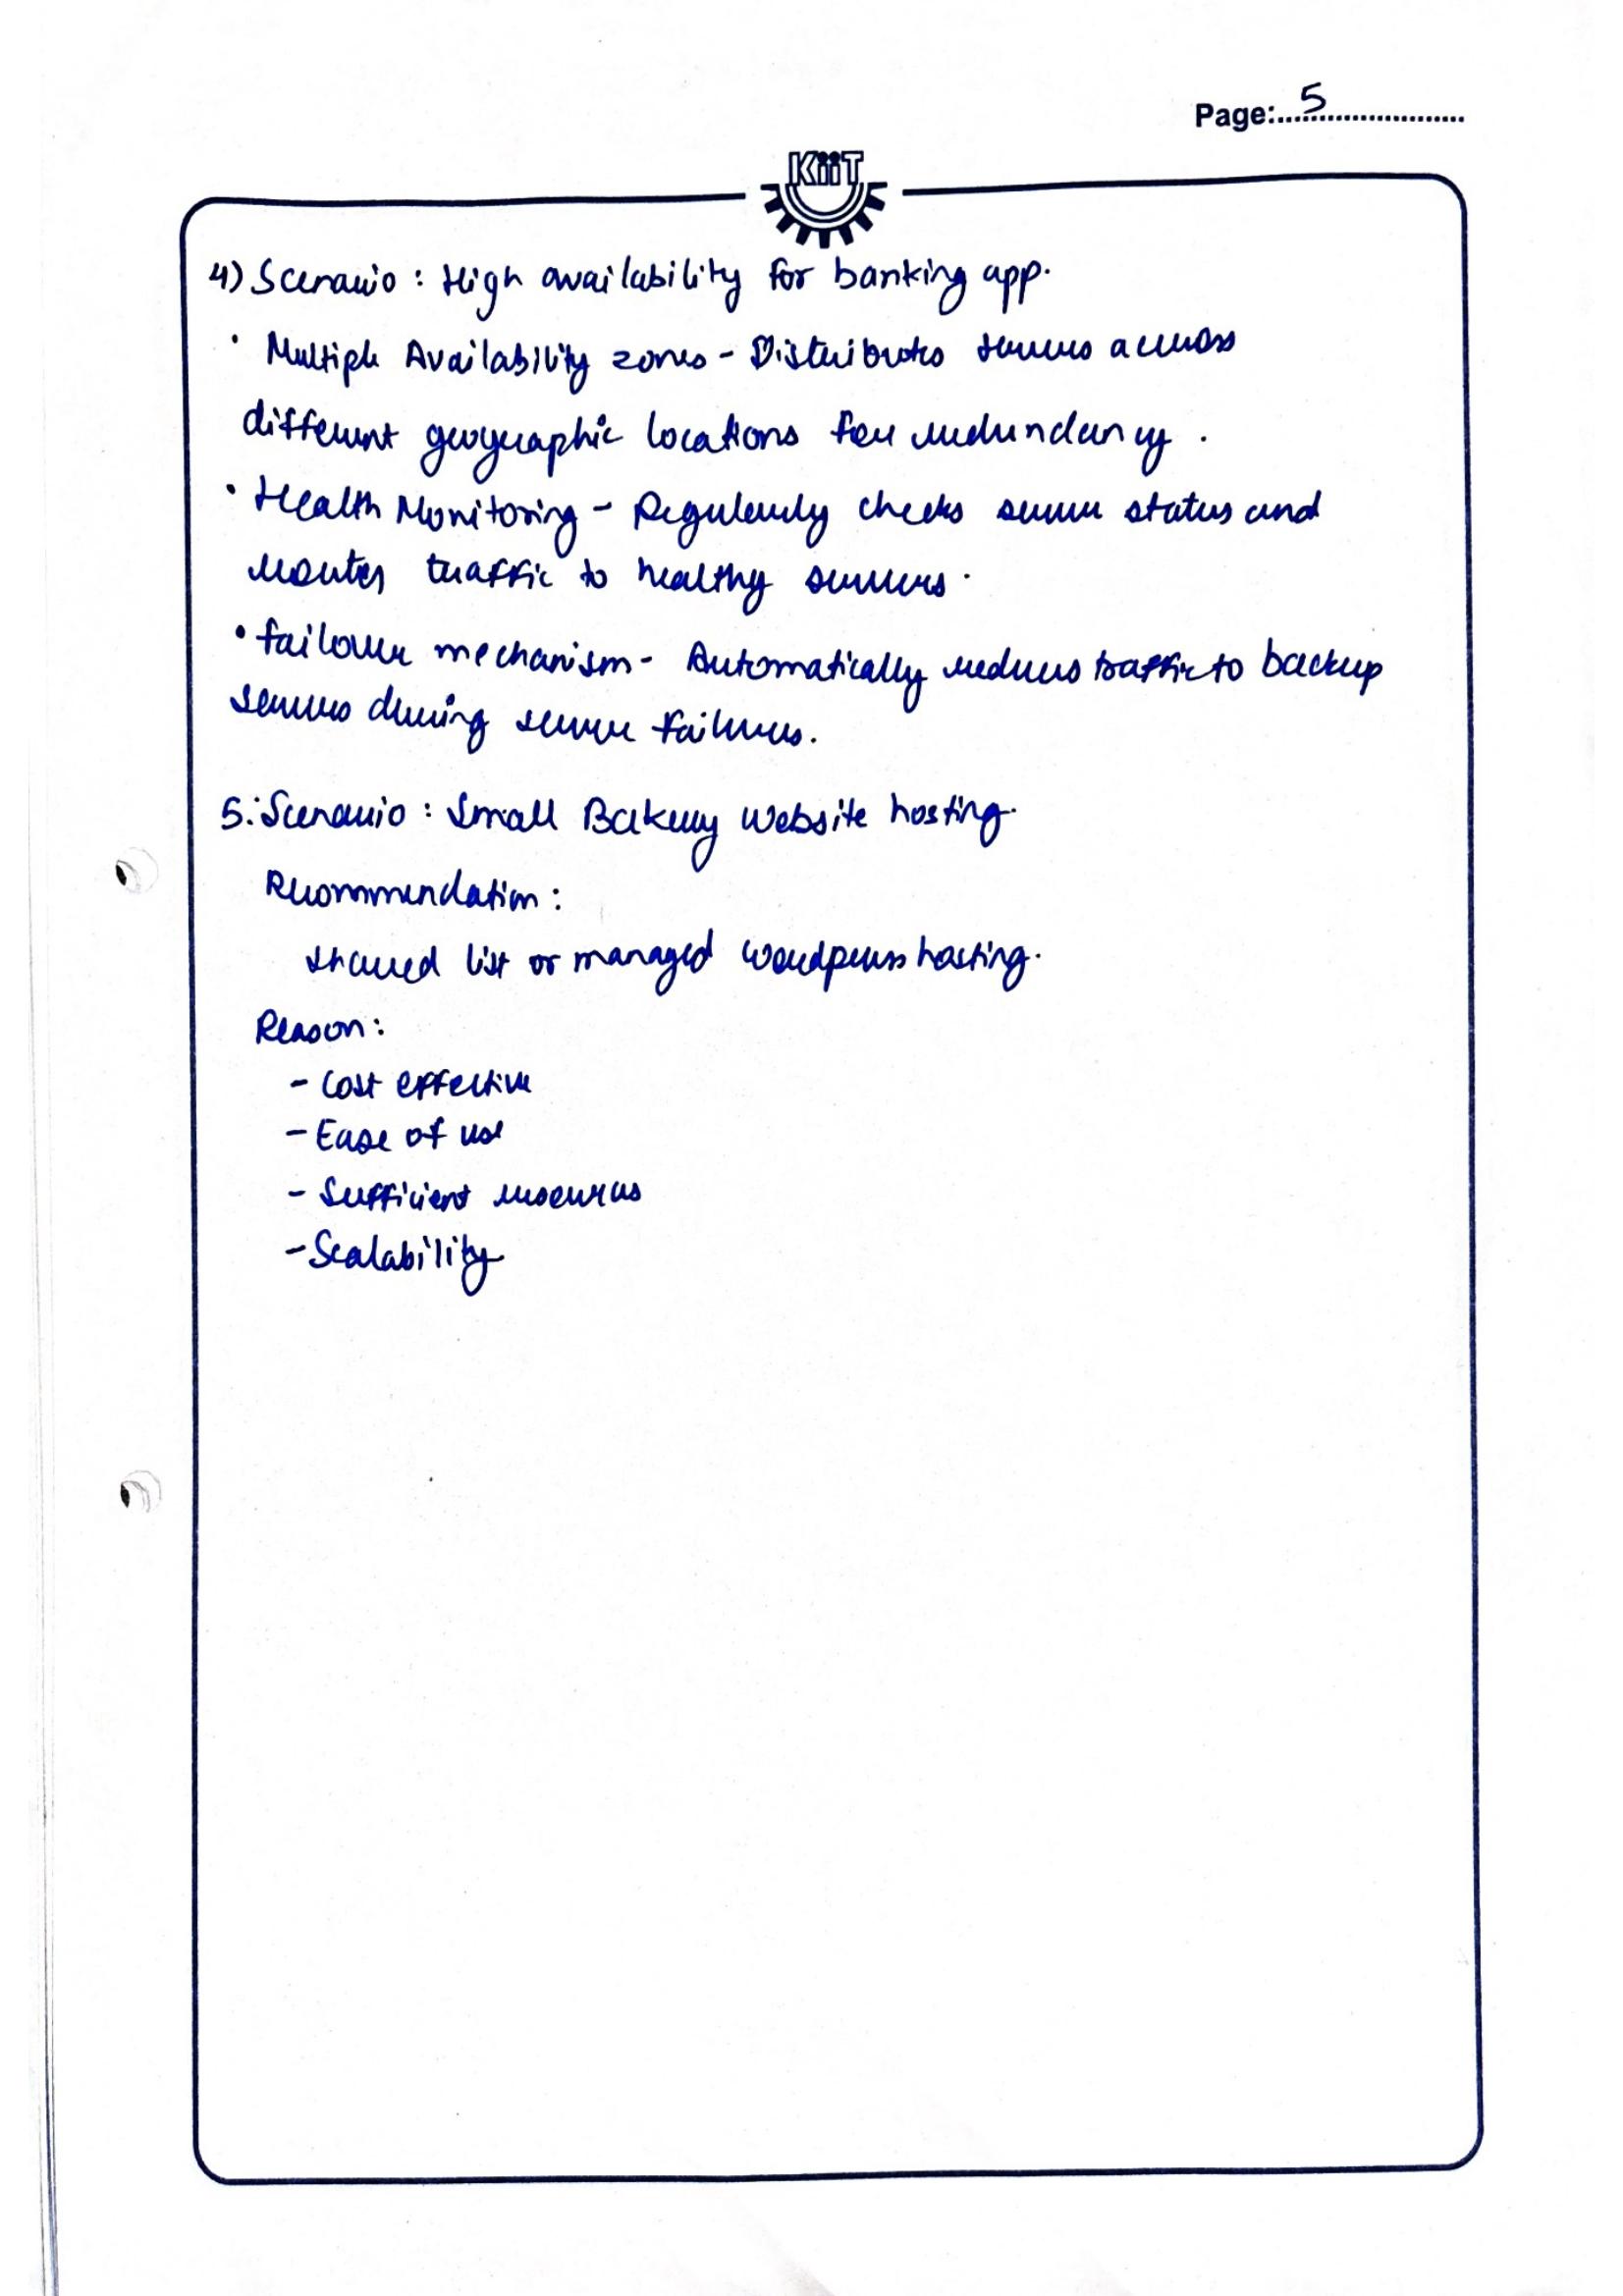 Page: 5
KiiT
4) Scenario : High availability for banking app.
• Multiple Availability zones - Distributes servers across
different geographic locations for redundancy .
• Health Monitoring - Regularly checks server status and
routes traffic to healthy servers .
• failover mechanism - Automatically traffic to backup
servers during server failures.
5. Scenario : Small Bakery Website hosting.
Recommendation :
shared list or managed wordpress hosting.
Reason :
- Cost effective
- Ease of use
- Sufficient resources
- Scalability